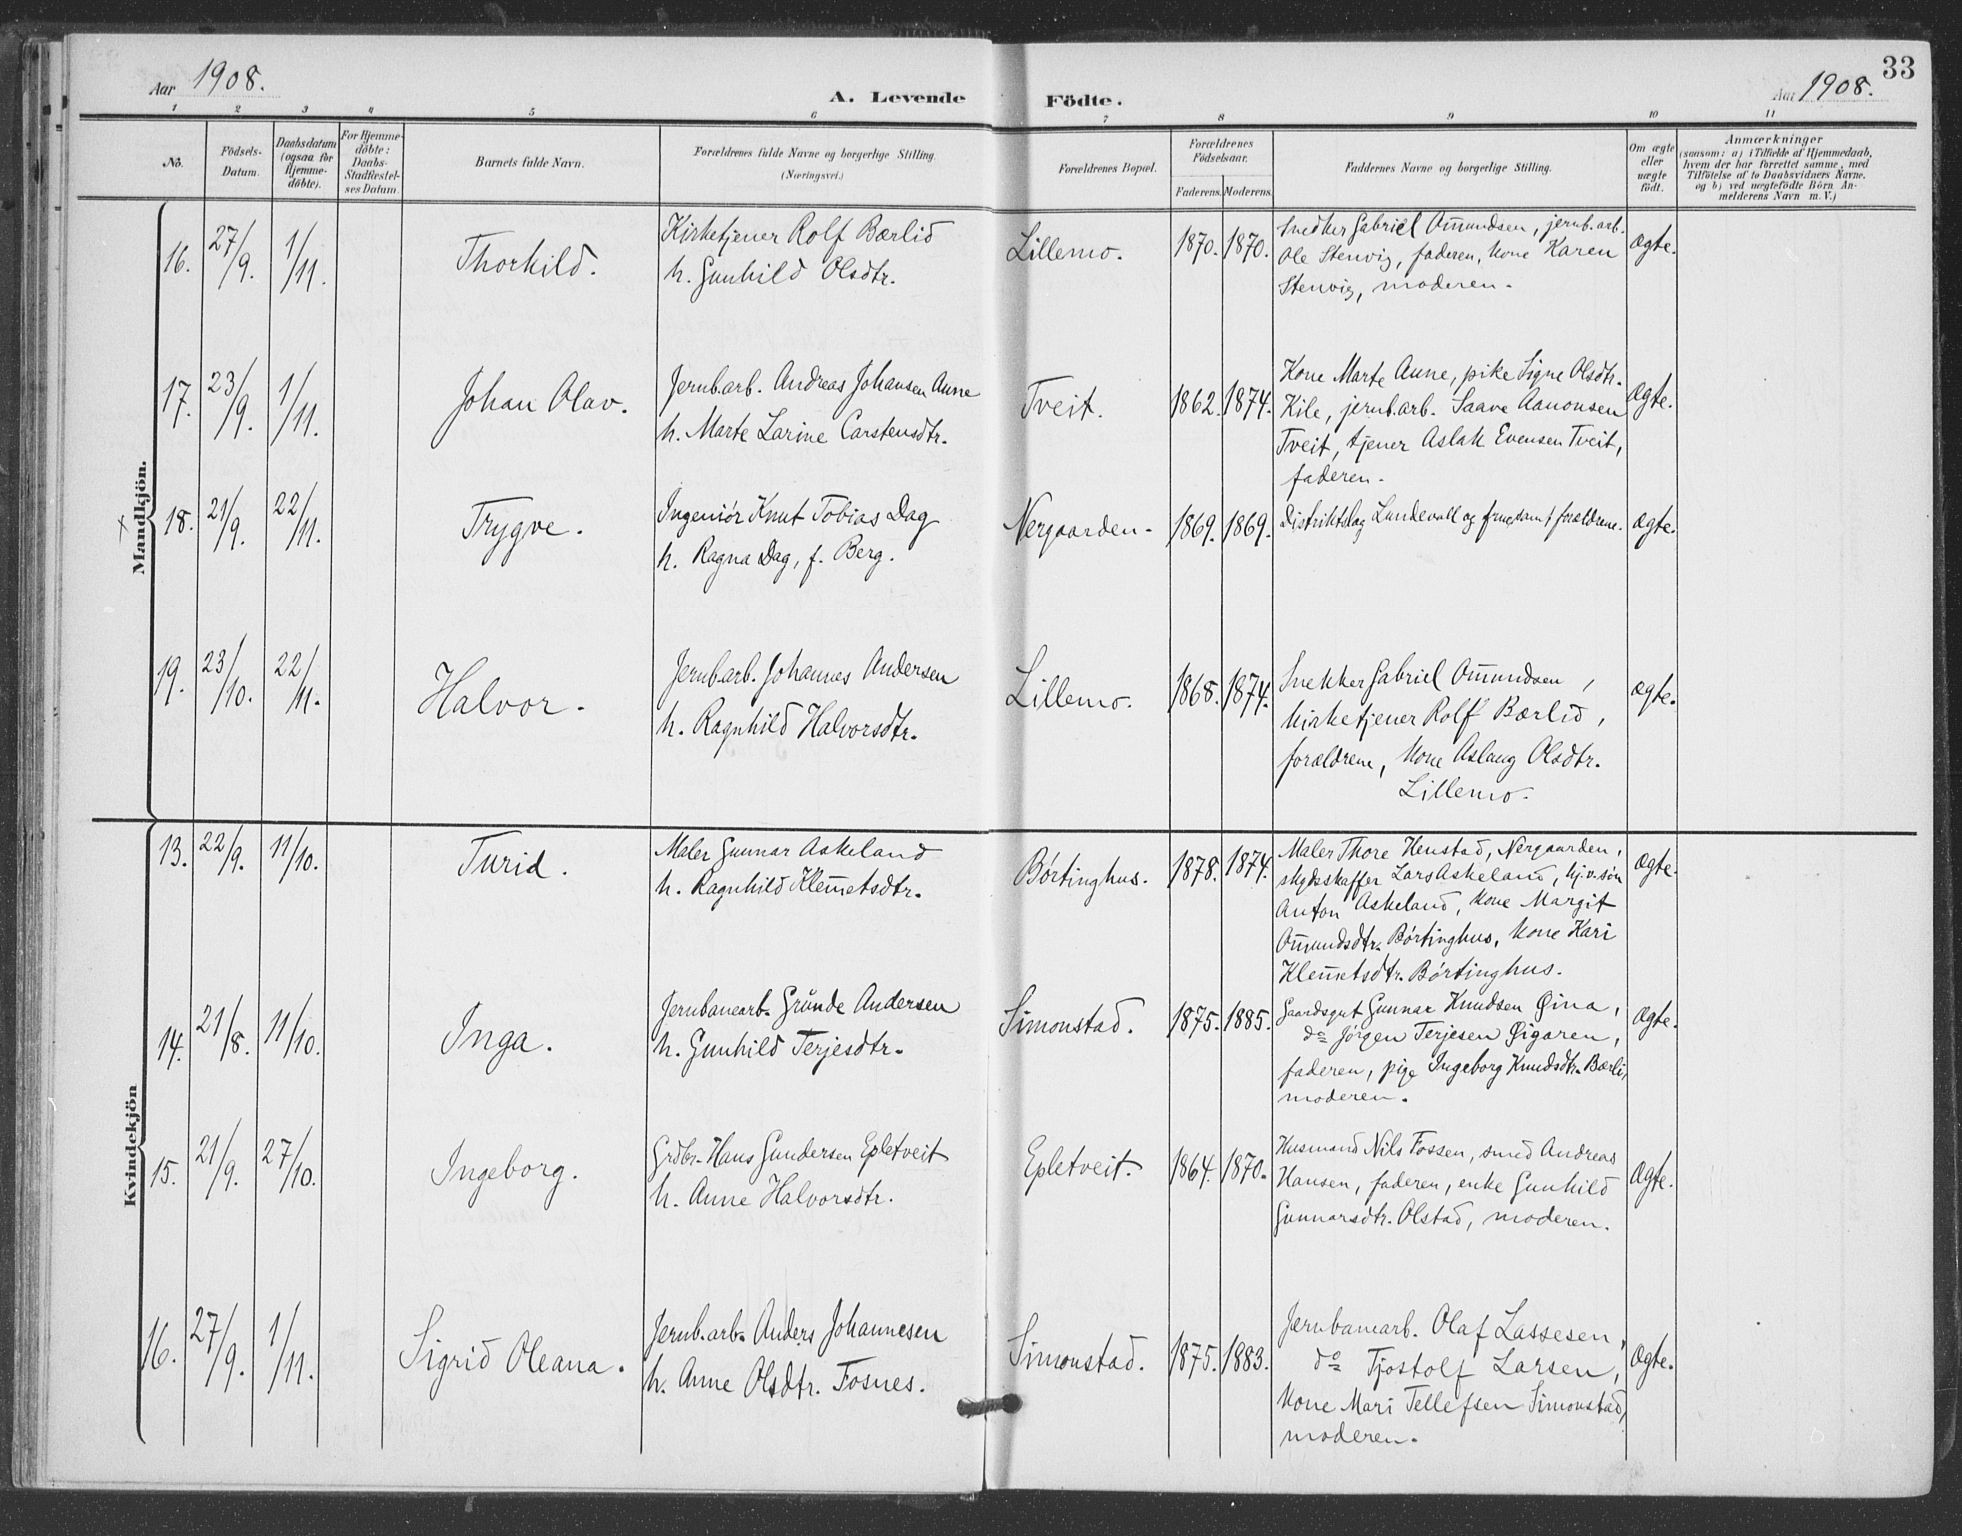 Aar 1908.
A. Levende Födte.
Aar 1908.
33
1 2 3 4 5 6 7 8 9 10 11
No.
Födsels-Datum.
Daabsdatum (ogsaa for Hjemme-döbte).
For Hjemme-döbte: Daabs-Stadfæstel-ses Datum.
Barnets fulde Navn.
Forældrenes fulde Navne og borgerlige Stilling. (Næringsvei.)
Forældrenes Bopæl.
Forældrenes Födselsaar.
Faderens. Moderens.
Faddernes Navne og borgerlige Stilling.
Om ægte eller uægte födt.
Anmærkninger
(saasom: a) i Tilfælde af Hjemmedaab,
hvem der har forrettet samme, med
Tilföielse af to Daabsvidners Navne.
og b) ved uægtefödte Börn An-
melderens Navn m. V.)
Mandkjön.
16. 27/9. 1/11. Thorkild.
Kirketjener Rolf Bærlid
h. Gunhild Olsdtr.
Lillemo. 1870. 1870.
Snedker Gabriel Om̄undsen, jernb.arb.
Ole Stenvig, faderen, kone Karen
Stenvig, moderen.
Ægte.
17. 23/9. 1/11. Johan Olav.
Jernb.arb. Andreas Johansen Aune
h. Marte Larine Carstensdtr.
Tveit. 1862. 1874.
Kone Marte Aune, pike Signe Olsdtr.
Kile, jernb.arb. Saave Aanonsen
Tveit, tjener Aslak Evensen Tveit,
faderen.
Ægte.
18. 21/9. 22/11. Trygve.
Ingeniör Knut Tobias Dag
h. Ragna Dag, f. Berg.
Nergaarden. 1869. 1869.
Distriktslag Lundevall og frue, samt forældrene.
Ægte.
19. 23/10. 22/11. Halvor.
Jernb.arb. Johannes Andersen
h. Ragnhild Halvorsdtr.
Lillemo. 1868. 1874.
Snekker Gabriel Om̄undsen,
kirketjener Rolf Bærlid,
forældrene, kone Aslaug Olsdtr.
Lillemo.
Ægte.
Kvindekjön
13. 22/9. 11/10. Turid.
Maler Gunnar Askeland
h. Ragnhild Klem̄etsdtr.
Børtinghus. 1878. 1874.
Maler Thore Henstad, Nergaarden,
skydsskaffer Lars Askeland, hj.v. søn
Anton Askeland, kone Margit
Om̄undsdtr. Børtinghus, kone Kari
Klem̄etsdtr. Børtinghus.
Ægte.
14. 21/8. 11/10. Inga.
Jernbanearb. Grunde Andersen
h. Gunhild Terjesdtr.
Simonstad. 1875. 1885.
Gaardsgut Gunnar Knudsen Øina,
do Jørgen Terjesen Øigaren,
faderen, pige Ingeborg Knudsdtr. Bærli,
moderen.
Ægte.
15. 21/9. 27/10. Ingeborg.
Grdbr. Hans Gundersen Epletveit
h. Anne Halvorsdtr.
Epletveit. 1864. 1870.
Husmand Nils Fossen, smed Andreas
Hansen, faderen, enke Gunhild
Gunnarsdtr. Olstad, moderen.
Ægte.
16. 27/9. 1/11. Sigrid Oleana.
Jernb.arb. Anders Johannesen
h. Anne Olsdtr. Fosnes.
Simonstad. 1875. 1883.
Jernbanearb. Olaf Lassesen,
do Tjostolf Larsen,
kone Mari Tellefsen Simonstad,
moderen.
Ægte.